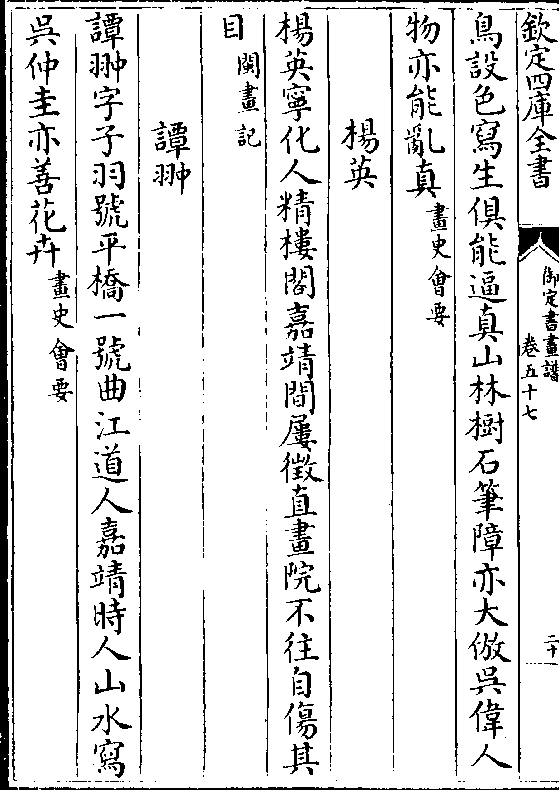 欽定四庫全書
御定書畫譜
卷五十七
二十
鳥設色寫生俱能逼真山林樹石筆障亦大倣吳偉人
物亦能亂真畫史會要
楊英
楊英寧化人精樓閣嘉靖間屢徵直畫院不往自傷其
目閩畫記
譚翀
譚翀字子羽號平橋一號曲江道人嘉靖時人山水寫
吳仲圭亦善花卉畫史會要